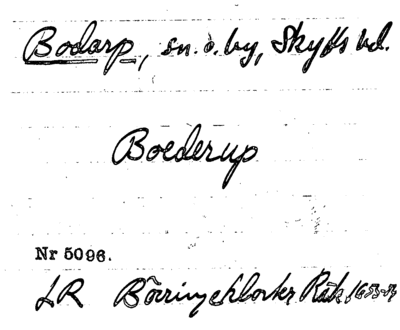 Bodarp, sn. o. by, Skytts hd.
Boederup
Nr 5096.
LR Börringekloster Räk. 1653-54